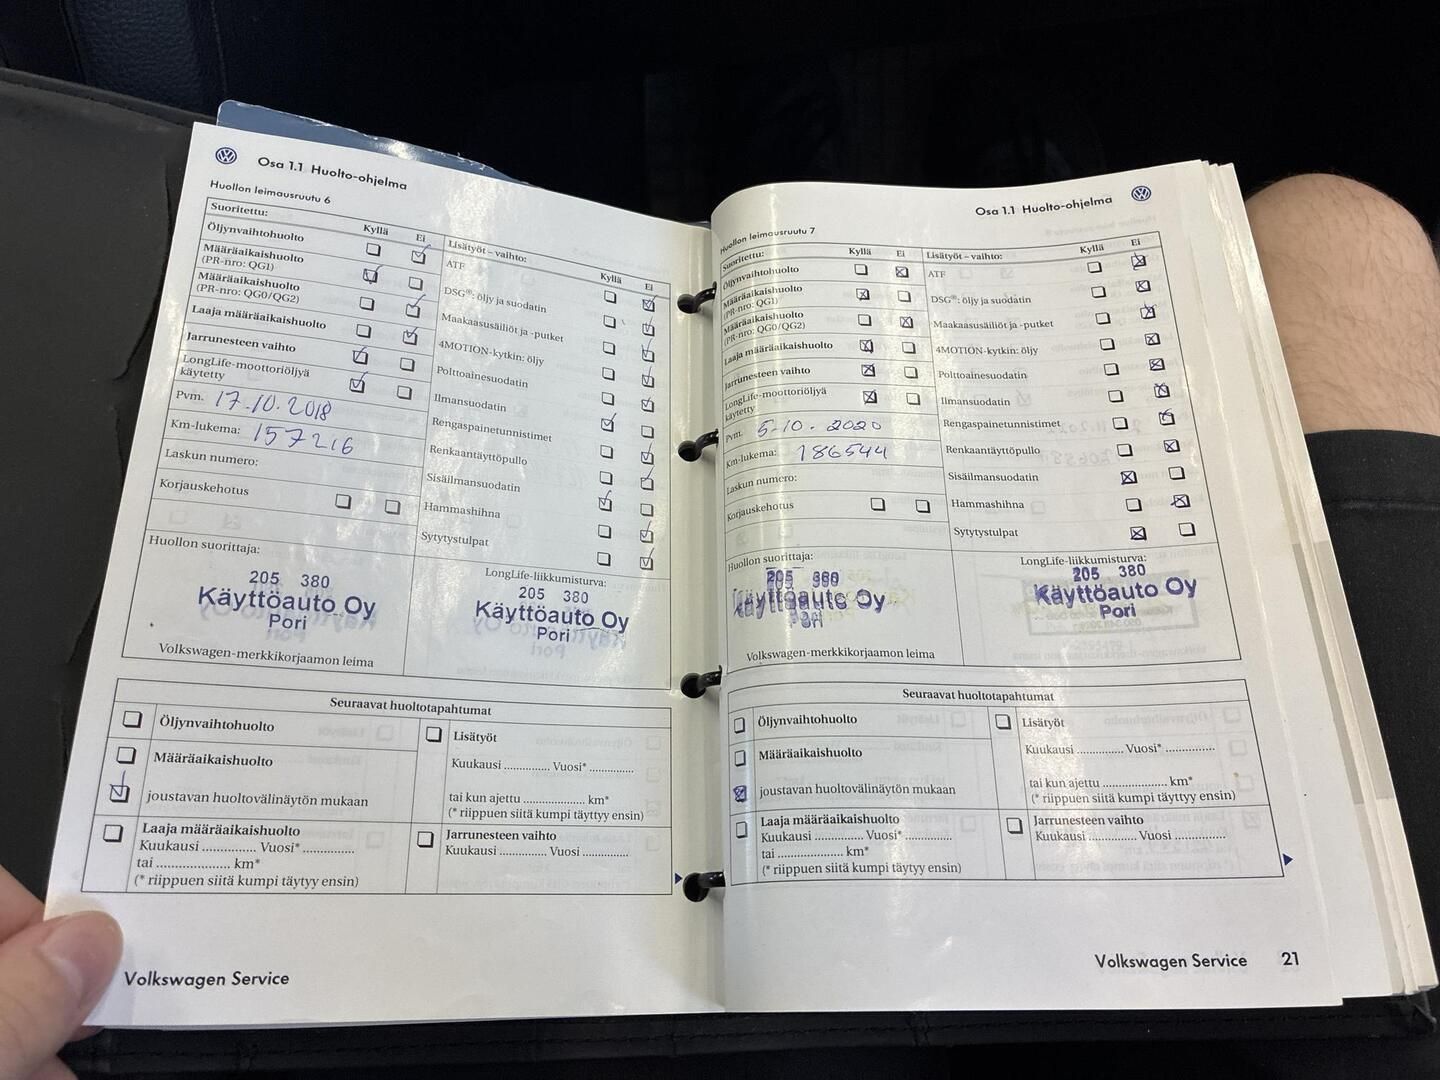 Osa 1.1 Huolto-ohjelma
Huollon leimausruutu 6
Suoritettu:
Kyllä Ei
Öljynvaihtohuolto
Määräaikaishuolto
(PR-nro: QG1)
Määräaikaishuolto
(PR-nro: QG0/QG2)
Laaja määräaikaishuolto
Jarrunesteen vaihto
LongLife-moottoriöljyä
käytetty
Pvm. 17.10.2018
Km-lukema: 157216
Laskun numero:
Korjauskehotus
Lisätyöt – vaihto:
Kyllä Ei
ATF
DSG®: öljy ja suodatin
Maakaasusäiliöt ja -putket
4MOTION-kytkin: öljy
Polttoainesuodatin
Ilmansuodatin
Rengaspainetunnistimet
Renkaantäyttöpullo
Sisäilmansuodatin
Hammashihna
Sytytystulpat
Huollon suorittaja:
205 380
Käyttöauto Oy
Pori
Volkswagen-merkkikorjaamon leima
LongLife-liikkumisturva:
205 380
Käyttöauto Oy
Pori
Seuraavat huoltotapahtumat
Öljynvaihtohuolto
Määräaikaishuolto
joustavan huoltovälinäytön mukaan
Lisätyöt
Kuukausi .............. Vuosi* ..............
tai kun ajettu .................... km*
(* riippuen siitä kumpi täyttyy ensin)
Laaja määräaikaishuolto
Kuukausi .............. Vuosi* ..............
tai .................... km*
(* riippuen siitä kumpi täytyy ensin)
Jarrunesteen vaihto
Kuukausi .............. Vuosi ..............
Volkswagen Service
Osa 1.1 Huolto-ohjelma
Huollon leimausruutu 7
Suoritettu:
Kyllä Ei
Öljynvaihtohuolto
Määräaikaishuolto
(PR-nro: QG1)
Määräaikaishuolto
(PR-nro: QG0/QG2)
Laaja määräaikaishuolto
Jarrunesteen vaihto
LongLife-moottoriöljyä
käytetty
Pvm. 5-10.2020
Km-lukema: 186544
Laskun numero:
Korjauskehotus
Lisätyöt – vaihto:
Kyllä Ei
ATF
DSG®: öljy ja suodatin
Maakaasusäiliöt ja -putket
4MOTION-kytkin: öljy
Polttoainesuodatin
Ilmansuodatin
Rengaspainetunnistimet
Renkaantäyttöpullo
Sisäilmansuodatin
Hammashihna
Sytytystulpat
Huollon suorittaja:
205 380
Käyttöauto Oy
Pori
Volkswagen-merkkikorjaamon leima
LongLife-liikkumisturva:
205 380
Käyttöauto Oy
Pori
Seuraavat huoltotapahtumat
Öljynvaihtohuolto
Määräaikaishuolto
joustavan huoltovälinäytön mukaan
Lisätyöt
Kuukausi .............. Vuosi* ..............
tai kun ajettu .................... km*
(* riippuen siitä kumpi täyttyy ensin)
Laaja määräaikaishuolto
Kuukausi .............. Vuosi* ..............
tai .................... km*
(* riippuen siitä kumpi täytyy ensin)
Jarrunesteen vaihto
Kuukausi .............. Vuosi ..............
Volkswagen Service 21